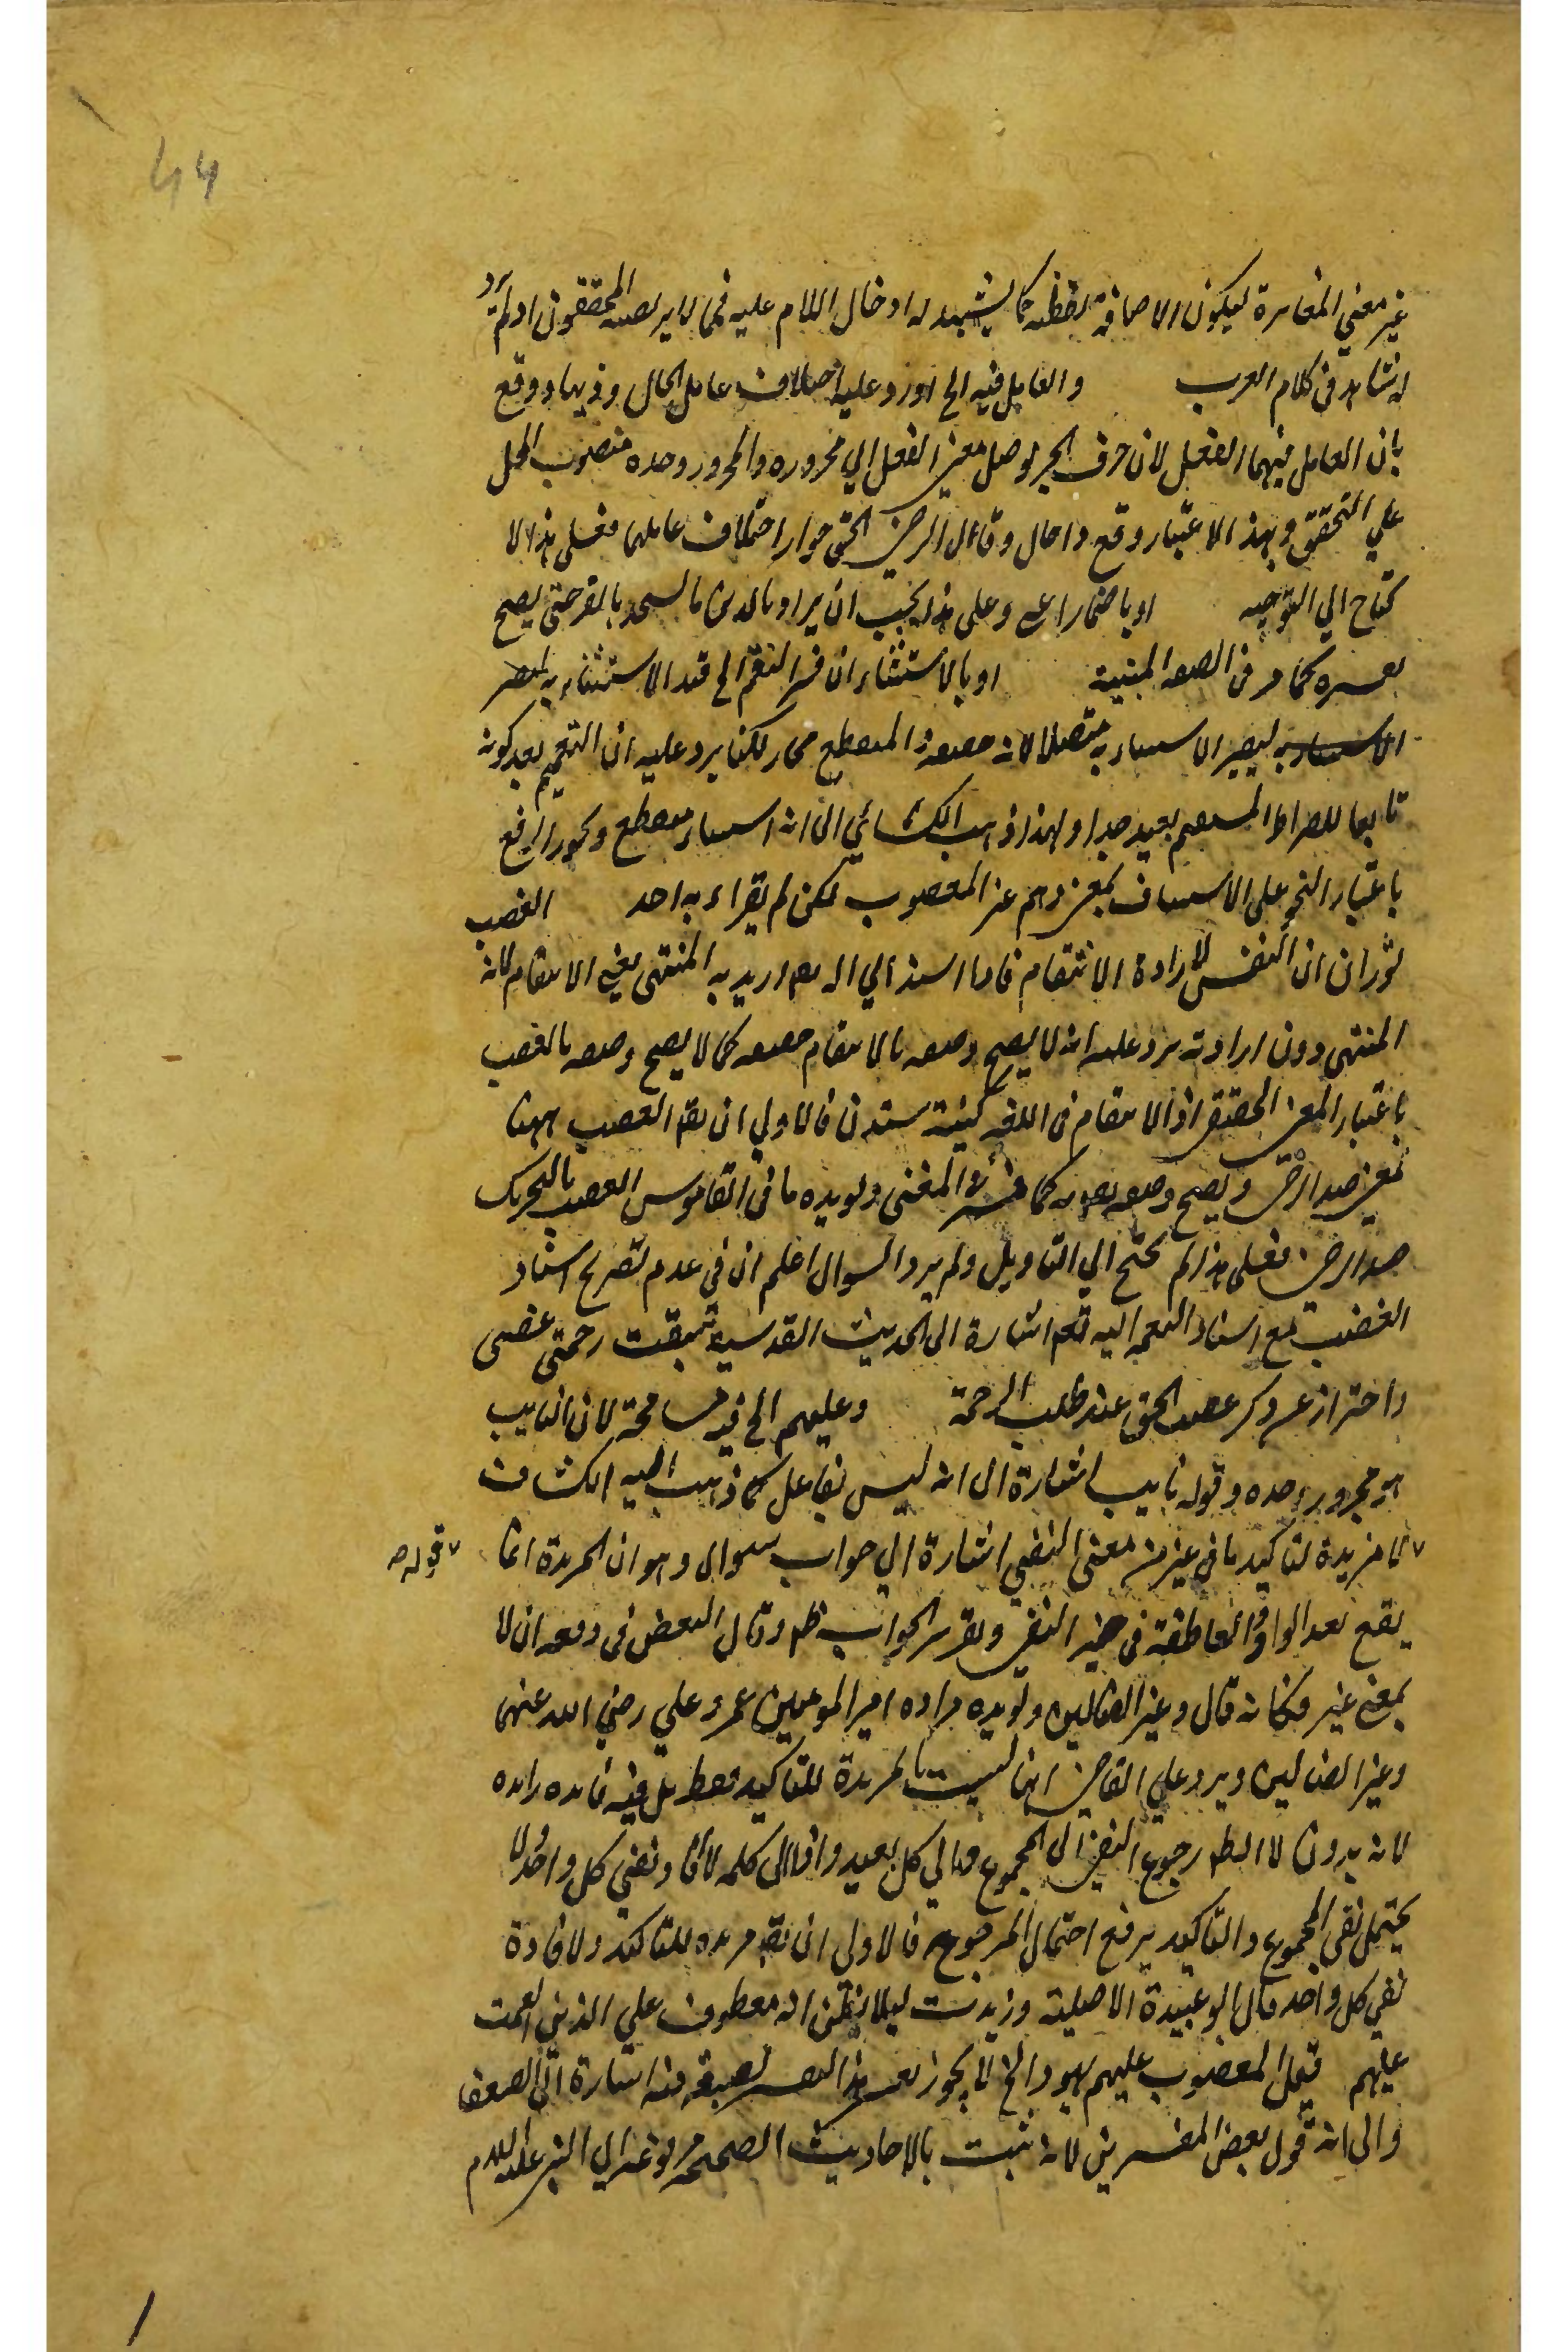 44
غير معني المغايرة ليكون الاضافة لفظية كما يشهد له ادخال اللام عليه فمما لا يرتضيه المحققون اذ لم يرد
له شاهد في كلام العرب والعامل فيه الخ اورد عليه اختلاف عامل الحال وذيها ودفع
بان العامل فيهما الفعل لان حرف الجر يوصل معني الفعل الي مجروره والمجرور وحده منصوب المحل
علي التحقيق وبهذا الاعتبار وقع ذا حال وقال الرضي الحق جواز اختلاف عاملهما فعلى هذا لا
يحتاج الي التوجيه او باضمار اعني وعلى هذا يجب ان يراد بالذين
كما مر في الصفة المبينة او بالاستثناء ان فسر النعم الخ قيد الاستثناء به ليصير
الاستثناء به ليصير الاستثناء به متصلا لانه حقيقة والمنقطع مجاز لكنا يرد عليه ان التعميم بعد كونه
تابعا للصراط المستقيم بعيد جدا ولهذا ذهب الكسائي الى انه استثناء منقطع ويجوز الرفع
باعتبار النحو على الاستيناف بمعني وهم غير المغضوب لكن لم يقراء به احد الغضب
ثوران النفس لارادة الانتقام فاذا اسند الي الله تعم اريد به المنتهى يعني الانتقام لانه
المنتهى دون ارادته يرد عليه انه لا يصح وصفه بالانتقام حقيقة كما لا يصح وصفه بالغضب
باعتبار المعني الحقيقي اذ الانتقام في اللغة كينه ستدن فالاولي ان يقم الغضب ههنا
بمعني ضد الرضى ويصح وصفه تعم به كما فسره المغني ويويده ما في القاموس الغضب بالتحريك
ضد الرضى فعلى هذا لم يحتج الي التاويل ولم يرد السوال اعلم ان في عدم تصريح اسناد
الغضب مع اسناد النعمة اليه تعم اشارة الى الحديث القدسي سبقت رحمتي غضبي
واحتراز عن ذكر غضب الحق عند طلب الرحمة وعليهم الخ فيه مسامحة لان النايب
هو مجرور وحده وقوله نايب اشارة الى انه ليس بفاعل كما ذهب اليه الكشاف
لا مزيدة لتاكيد ما في غير من معنى النفي اشارة الي جواب سوال وهو ان المزيدة انما قوله صه
يقع بعد الواو العاطفة في حيز النفي وتقرير الجواب ظه وقال البعض في دفعه ان لا
بمعني غير فكانه قال وغير الضالين ويويده قراءه امير المومنين عمر وعلي رضي الله عنهما
وغير الضالين ويرد علي القاضي انها ليست بالمزيدة للتاكيد فقط بل فيه فايده زايده
لانه بدون لا الظه رجوع النفي الى المجموع كلمه لا ونفي كل واحد لا
يحتمل نفي المجموع والتاكيد يرفع احتمال المرجوح فالاولى ان يقم مزيده للتاكيد ولافادة
نفي كل واحد قال ابو عبيدة الاصلية وزيدت ليلا يظن انه معطوف علي الذين انعمت
عليهم قيل المغضوب عليهم اليهود الخ لا يجوز هذا التفسير بصيغه فيه اشارة الى الضعف
والى انه قول بعض المفسرين لانه ثبت بالاحاديث الصحيحه مرفوعه الي النبي عليه السلم